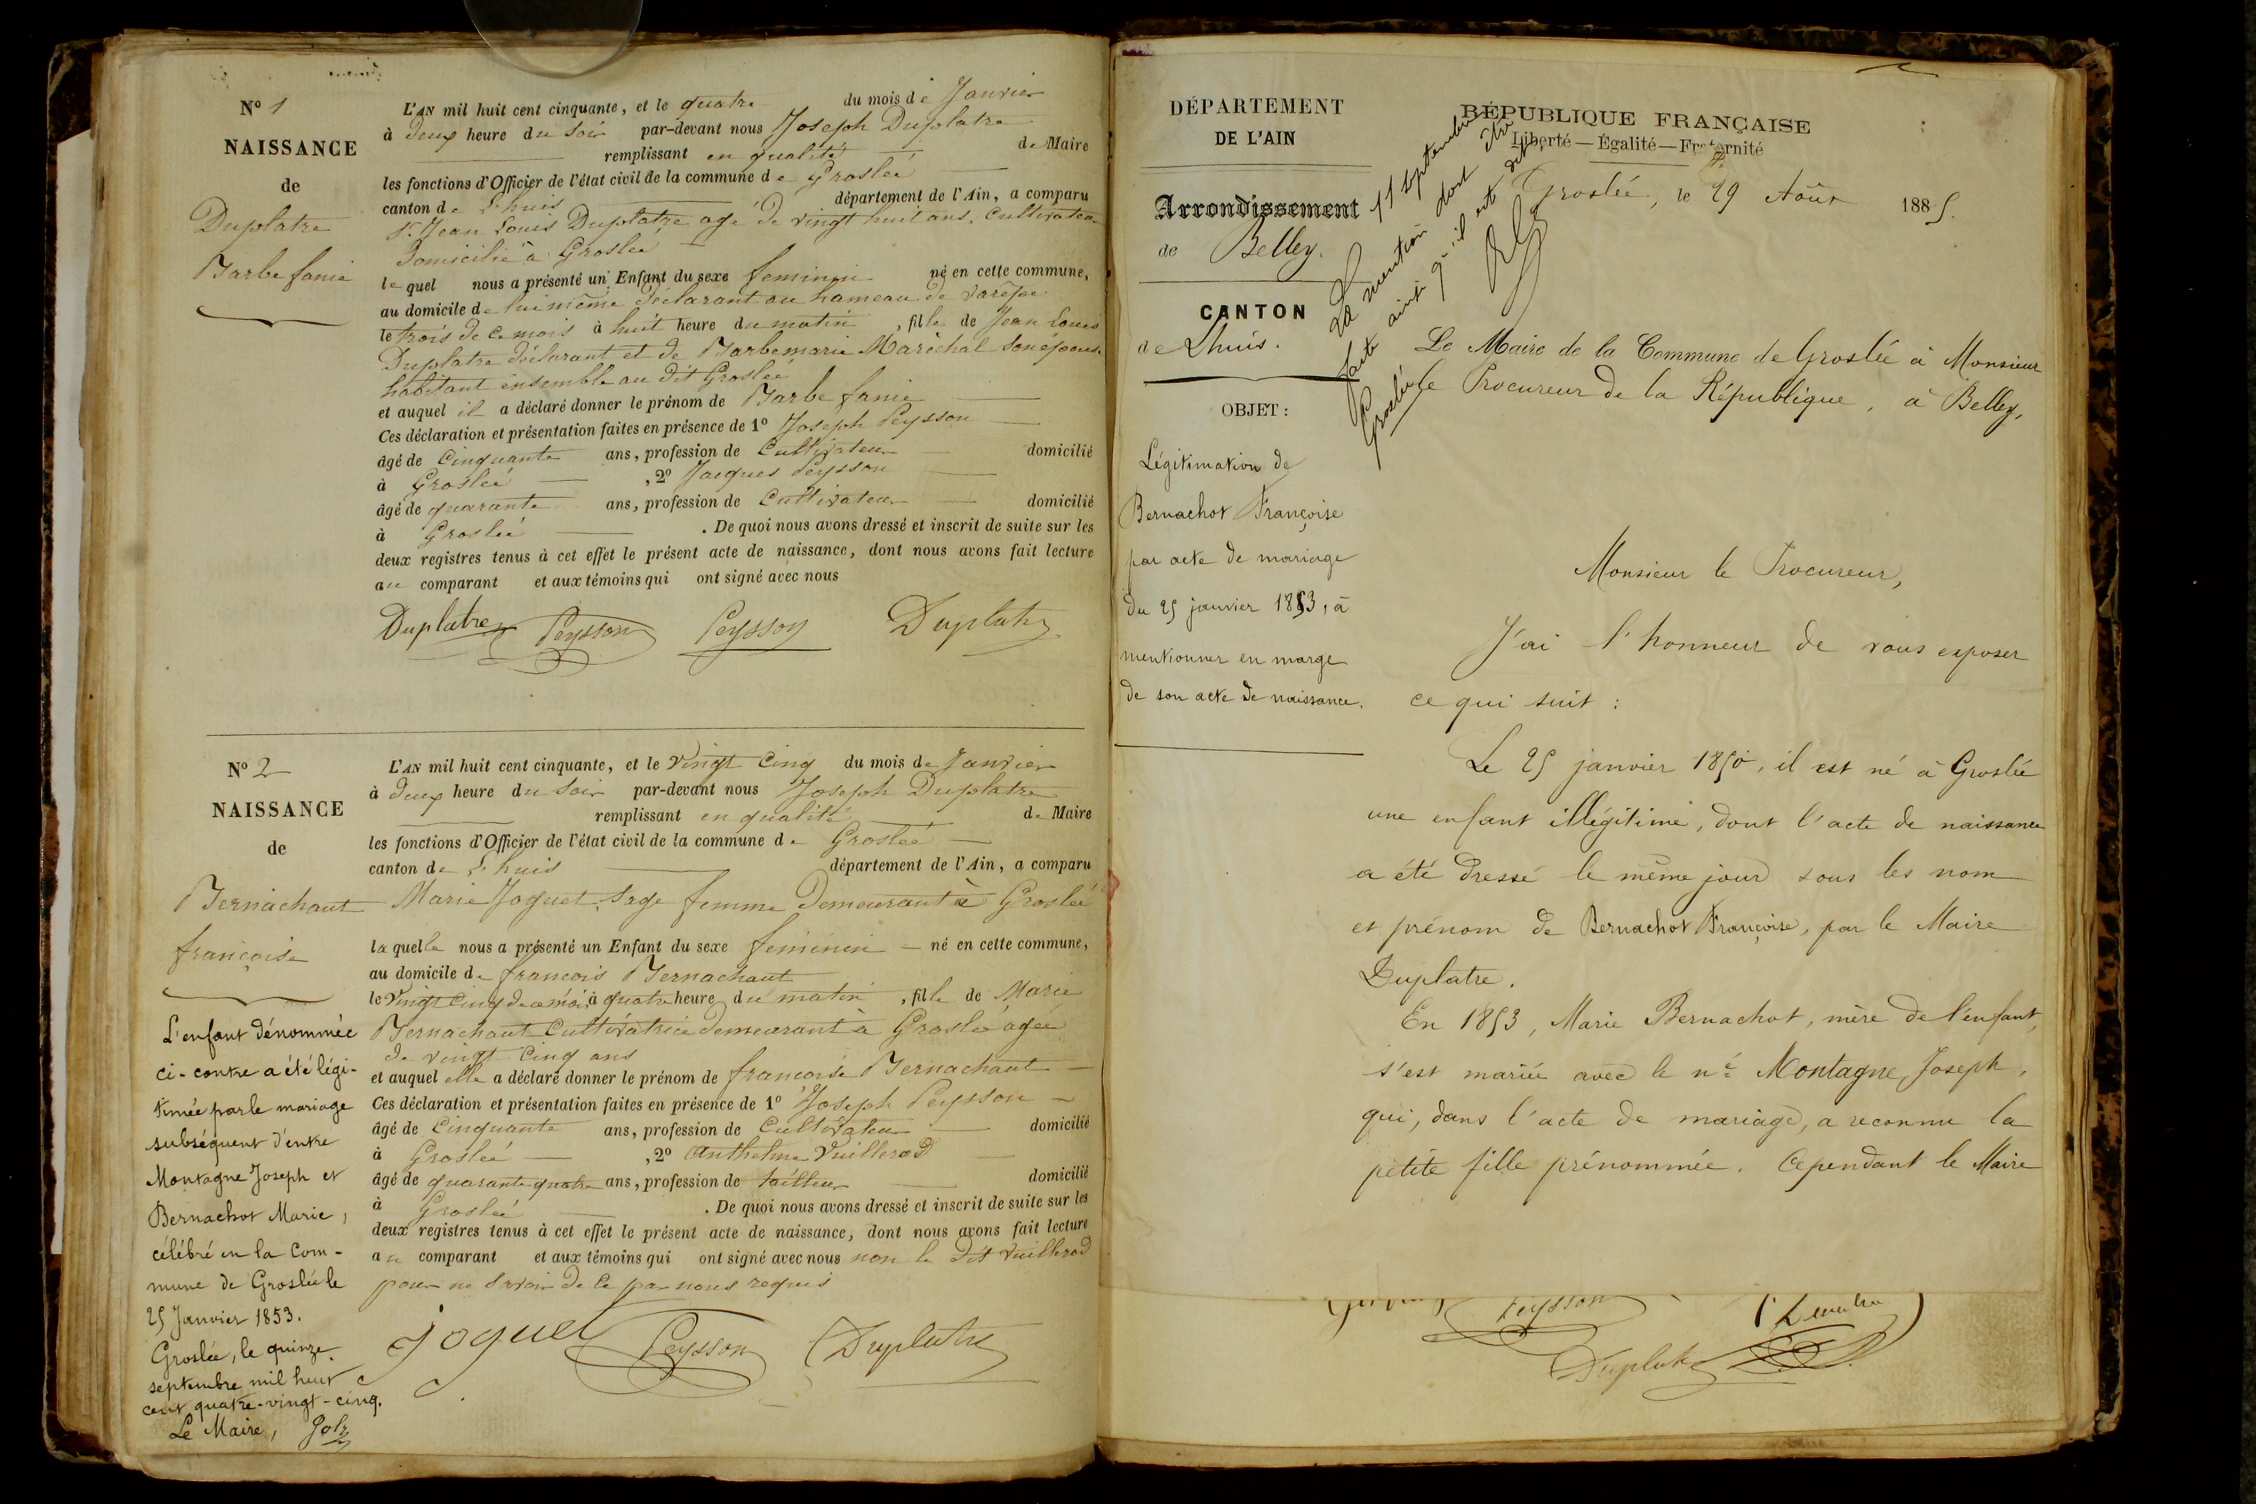 N° 1
NAISSANCE
de
Duplatre
Barbe fanie
L'AN mil huit cent cinquante, et le quatre du mois de Janvier
à deux heure du soir par-devant nous Joseph Duplatre
remplissant en qualité de Maire
les fonctions d'Officier de l'état civil de la commune de Groslée
canton de L'huis département de l'Ain, a comparu
Sr Jean Louis Duplatre agé de vingt huit ans, cultivateur
domicilié à Groslée
lequel nous a présenté un Enfant du sexe feminin né en cette commune,
au domicile de lui même déclarant au hameau de Varepe
le trois de ce mois à huit heure du matin, fille de Jean Louis
Duplatre déclarant et de Barbe marie Maréchal son épouse
habitant ensemble au dit Groslée
et auquel il a déclaré donner le prénom de Barbe fanie
Ces déclaration et présentation faites en présence de 1° Joseph Peysson
âgé de Cinquante ans, profession de Cultivateur domicilié
à Groslée, 2° Jacques Peysson
âgé de quarante ans, profession de Cultivateur domicilié
à Groslée. De quoi nous avons dressé et inscrit de suite sur les
deux registres tenus à cet effet le présent acte de naissance, dont nous avons fait lecture
au comparant et aux témoins qui ont signé avec nous
Duplatre Peysson Peysson Duplatre
N° 2
NAISSANCE
de
Bernachaut
françoise
L'AN mil huit cent cinquante, et le vingt cinq du mois de Janvier
à deux heure du soir par-devant nous Joseph Duplatre
remplissant en qualité de Maire
les fonctions d'Officier de l'état civil de la commune de Groslée
canton de L'huis département de l'Ain, a comparu
Marie Joguet, sage femme demeurant à Groslée
laquelle nous a présenté un Enfant du sexe feminin né en cette commune,
au domicile de francois Bernachaut
le vingt cinq de ce mois à quatre heure du matin, fille de Marie
Bernachaut Cultivatrice demeurant à Groslée agée
de vingt cinq ans
et auquel elle a déclaré donner le prénom de francoise Bernachaut
Ces déclaration et présentation faites en présence de 1° Joseph Peysson
âgé de Cinquante ans, profession de Cultivateur domicilié
à Groslée, 2° Anthelme Vuillerod
âgé de quarante quatre ans, profession de tailleur domicilié
à Groslée. De quoi nous avons dressé et inscrit de suite sur les
deux registres tenus à cet effet le présent acte de naissance, dont nous avons fait lecture
au comparant et aux témoins qui ont signé avec nous non le dit Vuillerod
pour ne savoir de ce par nous requis
Joguet Peysson Duplatre
L'enfant dénommée
ci-contre a été légi-
timée par le mariage
subséquent d'entre
Montagne Joseph et
Bernachot Marie,
célébré en la Com-
mune de Groslée le
25 Janvier 1853.
Groslée, le quinze
septembre mil huit
cent quatre-vingt-cinq.
Le Maire,
DÉPARTEMENT
DE L'AIN
Arrondissement
de Belley.
CANTON
de Lhuis.
OBJET :
Légitimation de
Bernachot Françoise
par acte de mariage
du 25 janvier 1853, à
mentionner en marge
de son acte de naissance.
RÉPUBLIQUE FRANÇAISE
Liberté — Égalité — Fraternité
Groslée, le 29 Août 1885.
La mention doit être
faite ainsi qu'il est dit
Groslée 11 septembre
Le Maire de la Commune de Groslée à Monsieur
le Procureur de la République, à Belley,
Monsieur le Procureur,
J'ai l'honneur de vous exposer
ce qui suit :
Le 25 janvier 1850, il est né à Groslée
une enfant illégitime, dont l'acte de naissance
a été dressé le même jour sous les nom
et prénom de Bernachot Françoise, par le Maire
Duplatre.
En 1853, Marie Bernachot, mère de l'enfant,
s'est mariée avec le né Montagne Joseph,
qui, dans l'acte de mariage, a reconnu la
petite fille prénommée. Cependant le Maire
Peysson
Duplatre